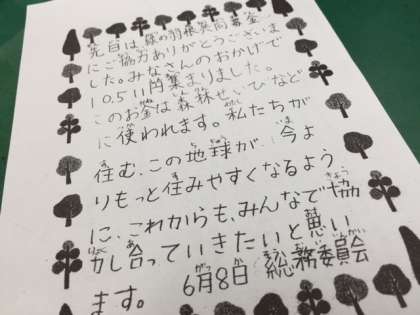 先日は、緑の羽根共同募金
にご協力ありがとうございま
した。みなさんのおかげで
10.511円集まりました。
このお金は森林せいびなど
に使われます。私たちが
住む、この地球が、今よ
りもっと住みやすくなるよう
に、これからも、みんなで協
力し合っていきたいと思い
ます。
6月8日 総務委員会